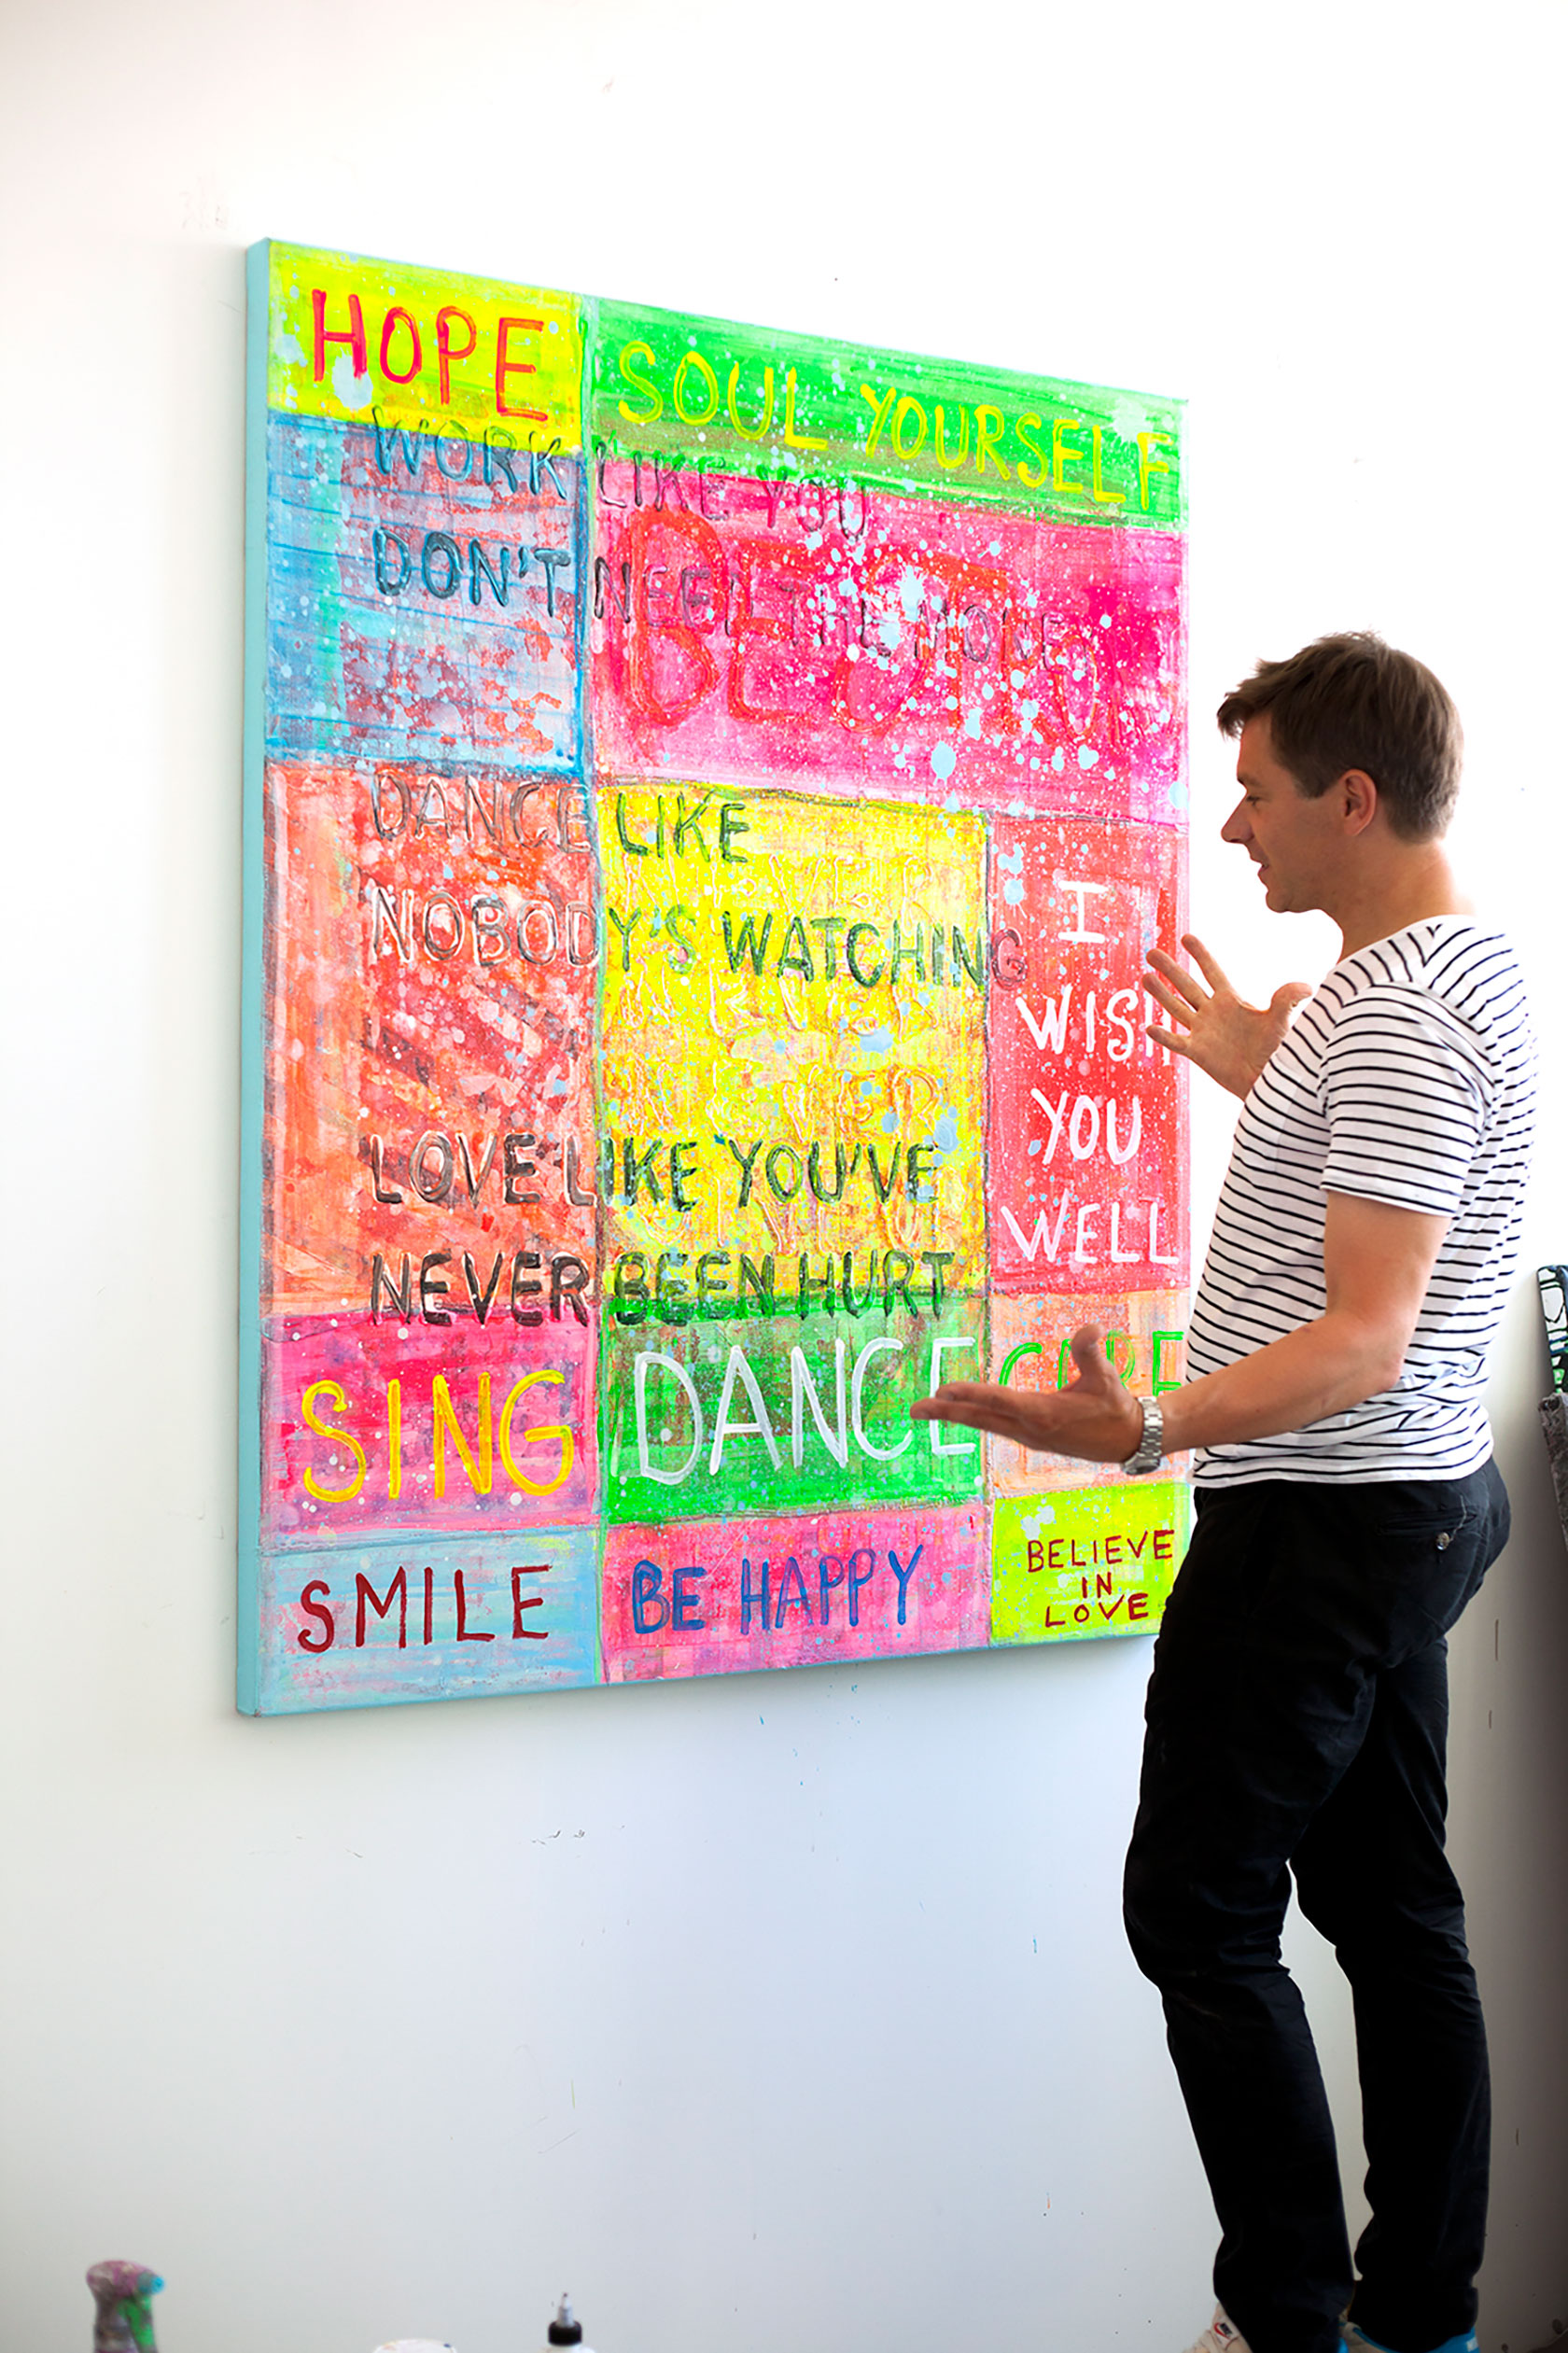 HOPE
SOUL YOURSELF
WORK LIKE YOU
DON'T NEED THE MONEY
DANCE LIKE
NOBODY'S WATCHING
LOVE LIKE YOU'VE
NEVER BEEN HURT
I
WISH
YOU
WELL
SING
DANCE
CARE
SMILE
BE HAPPY
BELIEVE
IN
LOVE